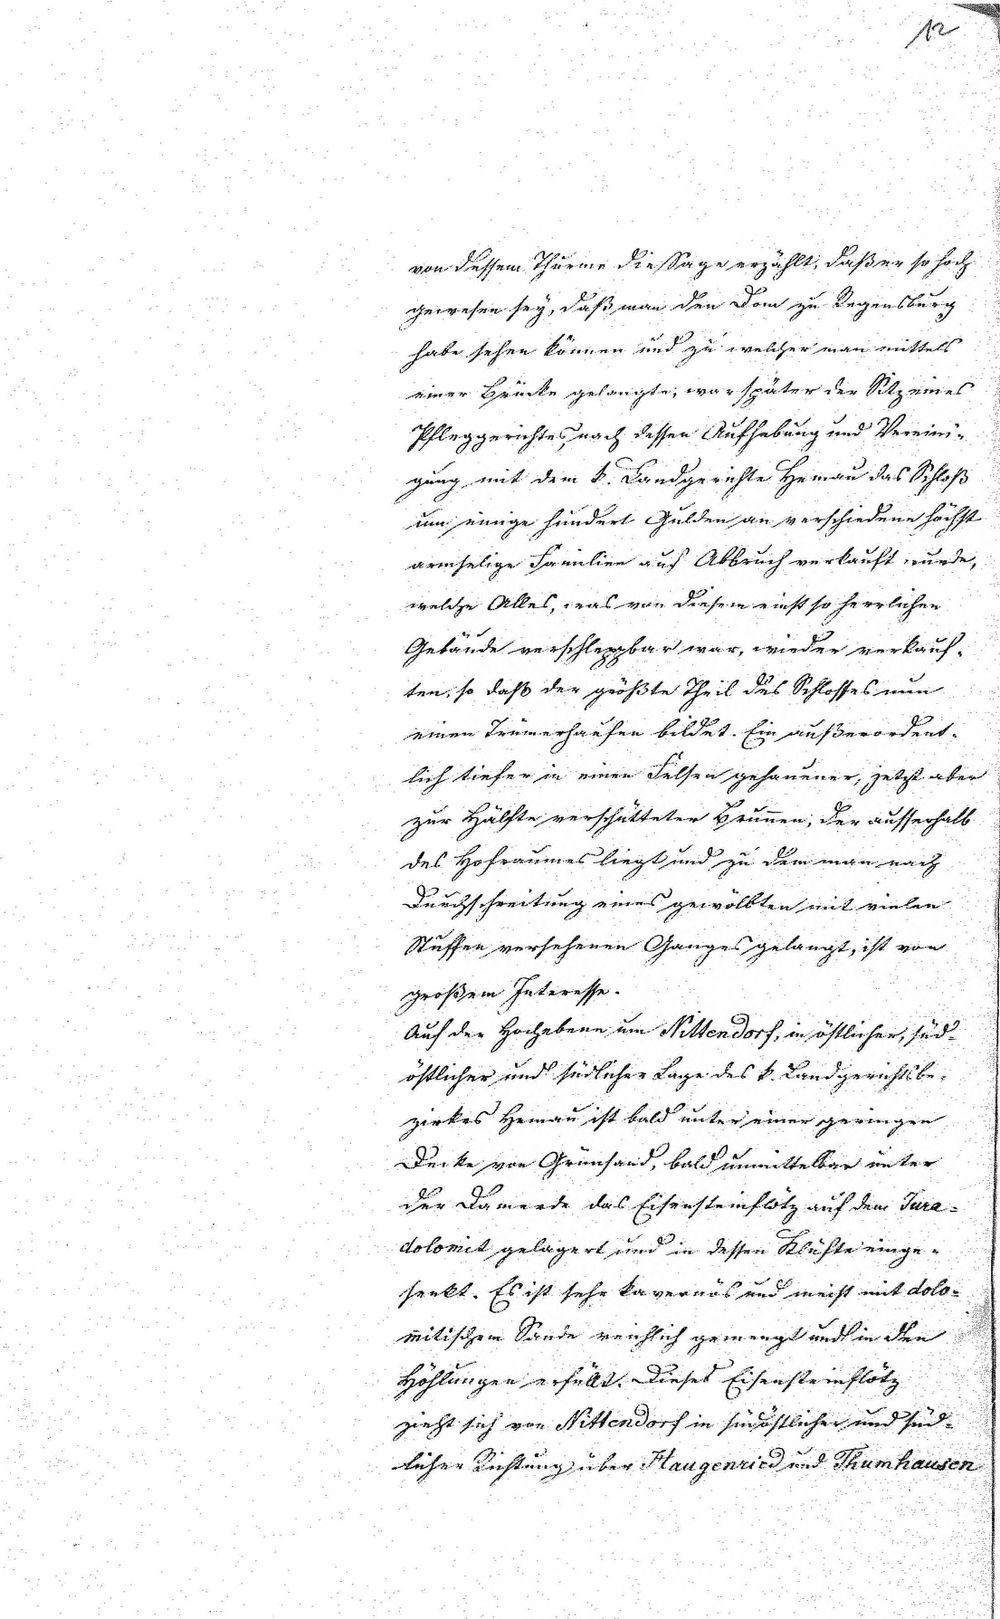 12
von dessem Thurme die Sage erzählt, daß er so hoch
gewesen sey, daß man den Dom zu Regensburg
habe sehen können und zu welcher man mittels
einer Brücke gelangte, war später der Sitz eines
Pfleggerichtes, nach dessen Aufhebung und Vereini-
gung mit dem k. Landgerichte Hemau das Schloß
um einige hundert Gulden an verschiedene höchst
armselige Familien auf Abbruch verkauft wurde,
welche Alles, was von diesem einst so herrlichen
Gebäude verschleppbar war, wieder verkauf-
ten, so daß der größte Theil des Schlosses nun
einen Trümerhaufen bildet. Ein außerordent-
lich tiefer in einen Felsen gehauener, jetzt aber
zur Hälfte verschütteter Brunnen, der ausserhalb
des Hofraumes liegt und zu dem man nach
Durchschreitung eines gewölbten mit vielen
Stuffen versehenen Ganges gelangt, ist von
großem Interesse.
Auf der Hochebene um Nittendorf, in östlicher, süd-
östlicher und südlicher Lage des k. Landgerichtsbe-
zirkes Hemau ist bald unter einer geringen
Decke von Grünsand, bald unmittelbar unter
der Damerde das Eisensteinflötz auf dem Jura-
dolomit gelagert und in dessen Klüfte einge-
senkt. Es ist sehr kavernös und meist mit dolo-
mitischem Sande reichlich gemengt und in den
Höhlungen erfüllt. Dieses Eisensteinflötz
zieht sich von Nittendorf in südöstlicher und süd-
licher Richtung über Haugenried und Thumhausen